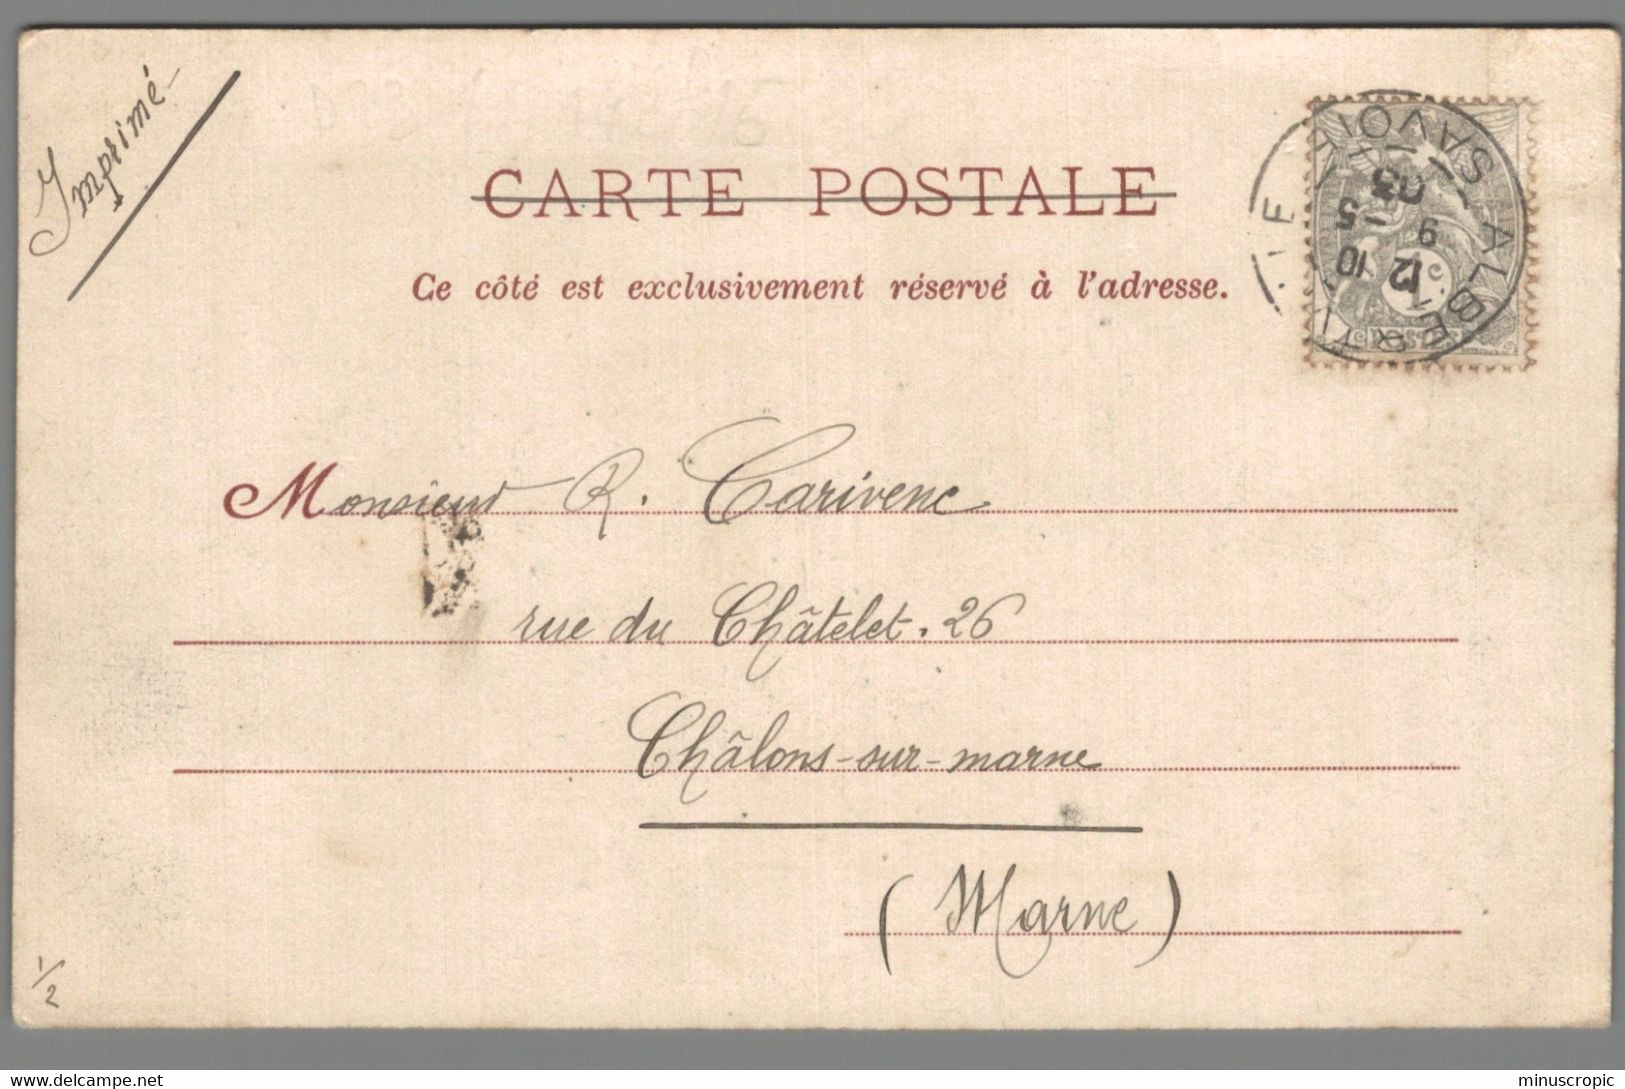 Imprimé
CARTE POSTALE
Ce côté est exclusivement réservé à l'adresse.
SAVOIE
ALBERTVILLE
10
12
9
5
03
POSTES
Monsieur R. Carivenc
rue du Châtelet. 26
Châlons-sur-marne
(Marne)
1/2
www.delcampe.net
minuscropic